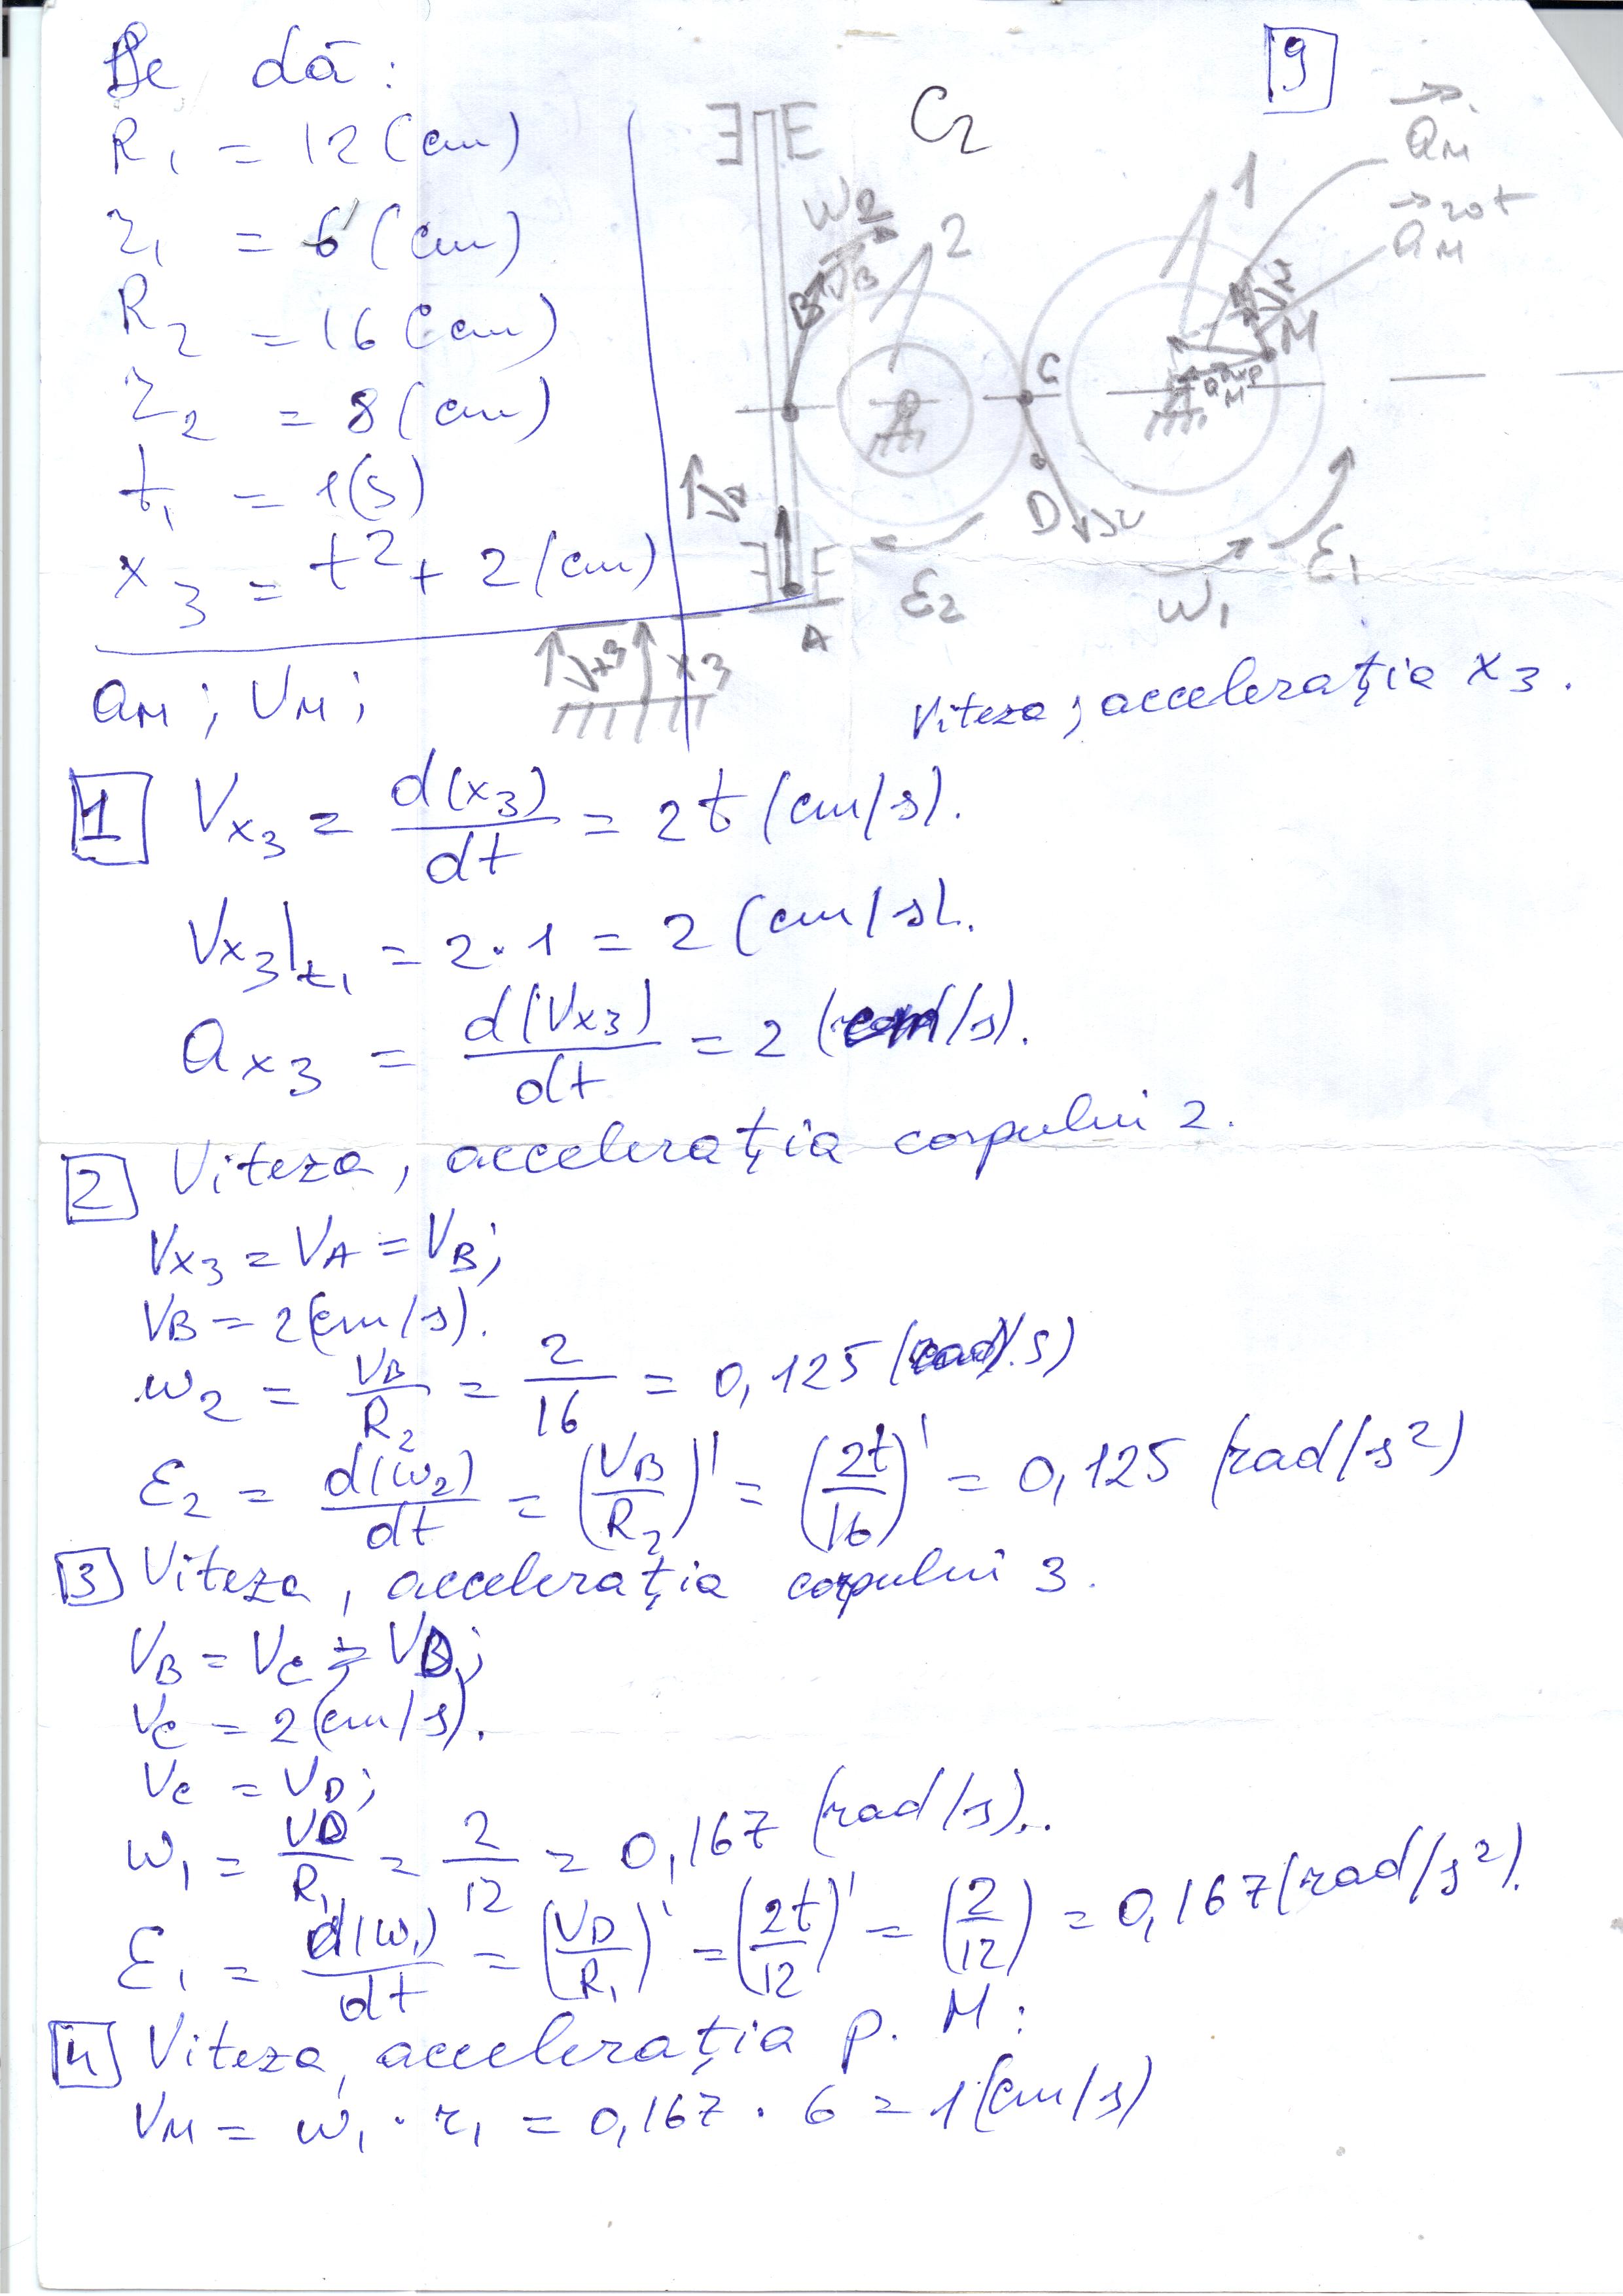 Se dă:
R₁ = 12 (cm)
r₁ = 6 (cm)
R₂ = 16 (cm)
r₂ = 8 (cm)
t₁ = 1 (s)
x₃ = t² + 2 (cm)
aM; VM;
9
C₂
aM
aM rot
W₂
VB
2
1
B
C
M
D
A
E₂
W₁
E₁
x₃
Viteza, accelerația x₃.
1 Vx₃ = d(x₃)/dt = 2t (cm/s).
Vx₃|t₁ = 2·1 = 2 (cm/s).
ax₃ = d(Vx₃)/dt = 2 (cm/s).
2 Viteza, accelerația corpului 2.
Vx₃ = VA = VB;
VB = 2 (cm/s).
w₂ = VB/R₂ = 2/16 = 0,125 (rad/s)
ε₂ = d(w₂)/dt = (VB/R₂)' = (2t/16)' = 0,125 (rad/s²)
3 Viteza, accelerația corpului 3.
VB = Vc = VD;
Vc = 2 (cm/s).
Vc = VD;
w₁ = VD/R₁ = 2/12 = 0,167 (rad/s)..
ε₁ = d(w₁)/dt = (VD/R₁)' = (2t/12)' = (2/12) = 0,167 (rad/s²).
4 Viteza, accelerația p. M:
VM = w₁ · r₁ = 0,167 · 6 = 1 (cm/s)